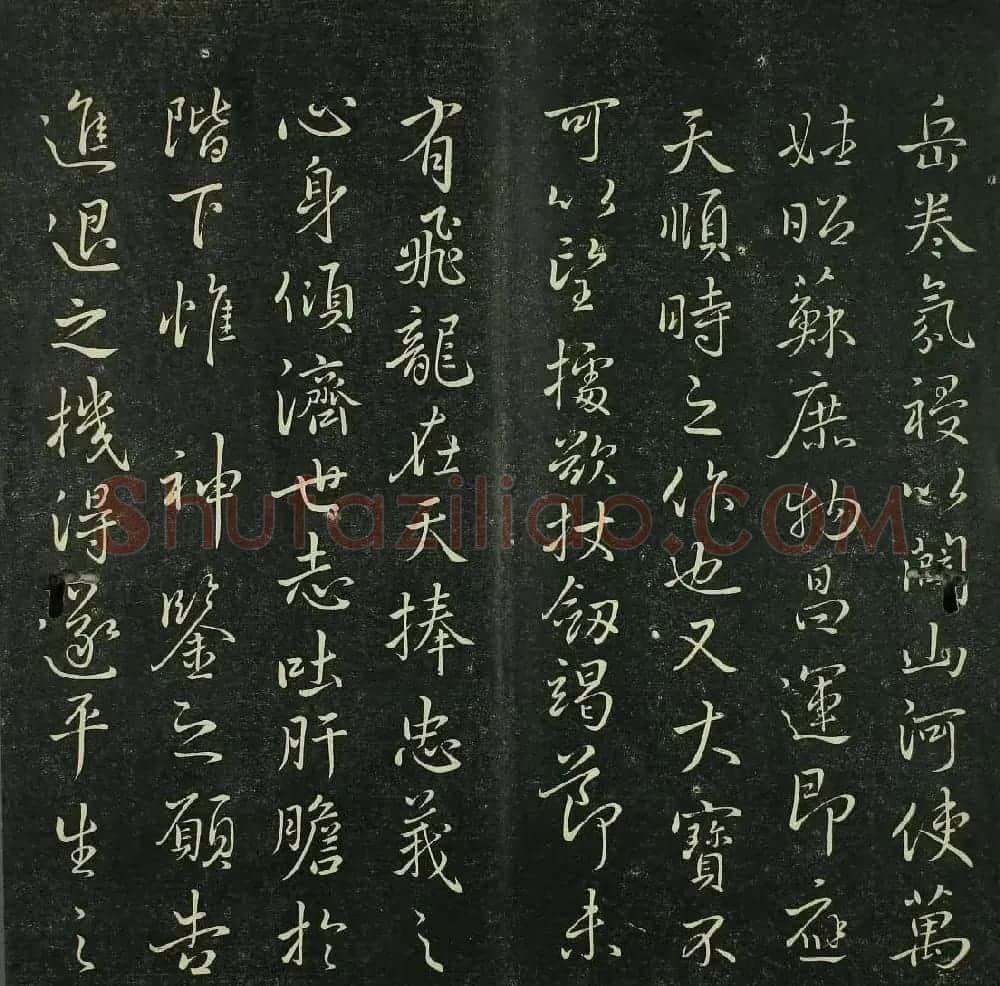 岳卷氛祲以山河使萬
姓昭蘇庶物昌運即應
天順時之作也又大寶不
可以望擂欲扙劔竭節未
有飛龍在天捧忠義之
心身傾濟世志吐肝膽於
階下惟神鑒之願告
進退之機得遂平生之
Shutaziliao.COM